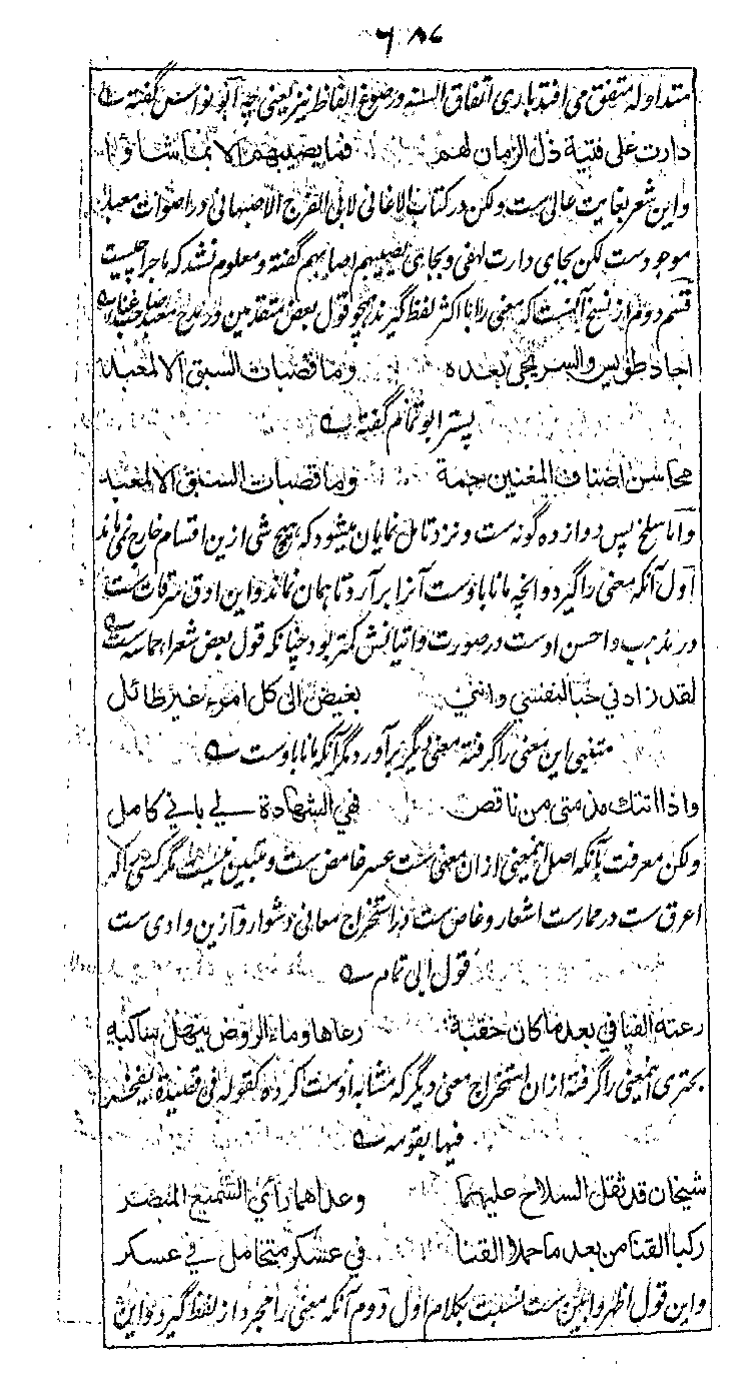 ۶۸۷
متداوله متفق می افتد باری اتفاق السنه در صوغ الفاظ نیز یعنی چه ابو نواس گفته
دارت علی فتیة ذل الزمان لهم فما یصیبهم الا بما شاؤا
و این شعر بغایت عالی ست ولکن در کتاب الاغانی لابی الفرج الاصبهانی در اصوات معبد
موجودست لکن بجای دارت لهفی و بجای یصیبهم اصابهم گفته و معلوم نشد که ماجرا چیست
قسم دوم از نسخ آنست که معنی را با اکثر لفظ گیرند همچو قول بعض متقدمین در مدح معبد صاحب غنا
اجاد طویس والسریجی بعده وما قصبات السبق الا لمعبد
پستر ابو تمام گفته
محاسن اصناف المغنین جمة وما قصبات السبق الا لمعبد
و اما سلخ پس دوازده گونه ست و نزد تامل نمایان میشود که هیچ شی ازین اقسام خارج نمی ماند
اول آنکه معنی را گیرد و انچه مانا باوست آنرا برآرد تا همان نماند و این ادق سرقات ست
در مذهب و احسن اوست در صورت و اتیانش کمتر بود چنانکه قول بعض شعراء حماسه ست
لقد زادنی حبا لنفسی واننی بغیض الی کل امرء غیر طائل
متنبی این معنی را گرفته معنی دیگر برآورد مگر آنکه مانا باوست
واذا اتتك مذمتی من ناقص فهی الشهادة لی بانی کامل
ولکن معرفت بآنکه اصل اینمعنی ازان معنی ست عسر غامض ست و متبین نیست مگر کسی را که
اعرق ست در ممارست اشعار و غاص ست در استخراج معانی دشوار و ازین وادی ست
قول ابی تمام
رعته الفیافی بعد ما کان حقبة رعاها وماء الروض ینهل ساکبه
بحتری اینمعنی را گرفته ازان استخراج معنی دیگر که مشابه اوست کرده کقوله فی قصیدة یفخر
فیها بقومه
شیخان قد ثقل السلاح علیهما وعداهما رأی السمیع المبصر
رکبا القنا من بعد ما حملا القنا فی عسکر متحامل فی عسکر
و این قول اظهر و ابین ست نسبت بکلام اول دوم آنکه معنی را مجرد از لفظ گیرد و این